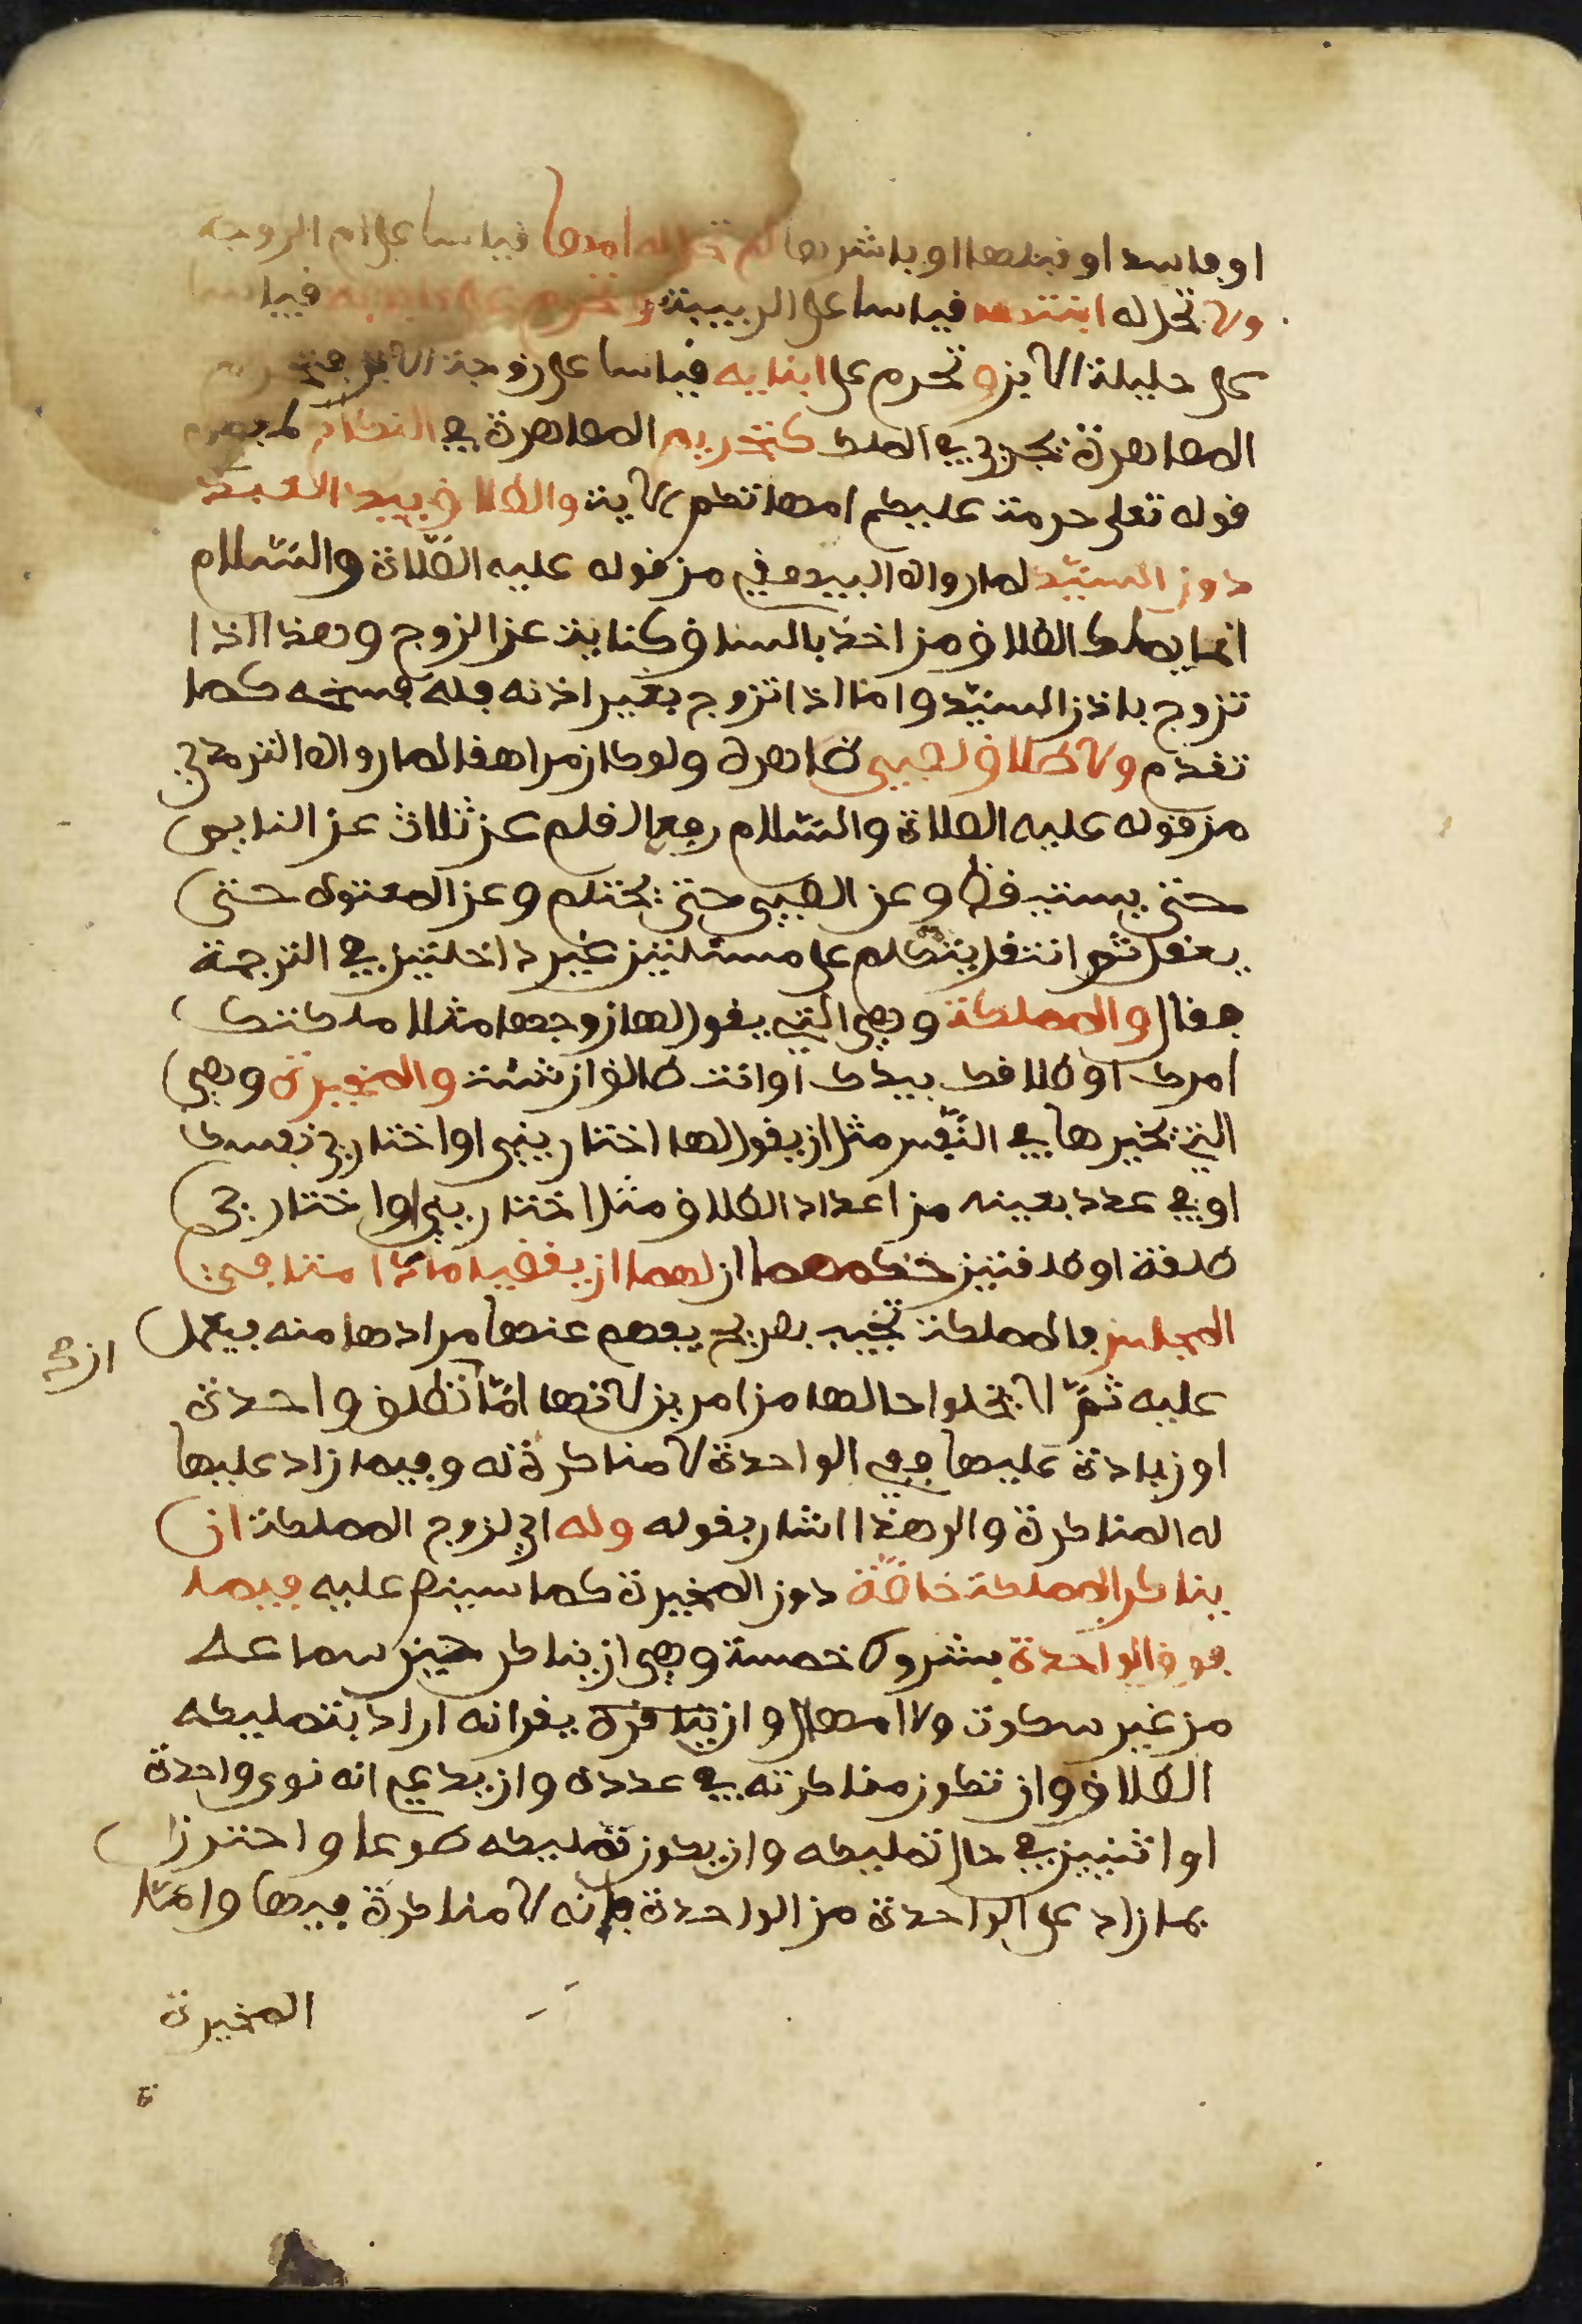 او فاسد او قبلها او باشرها لم تحل له امها قياسا على ام الزوجة
ولا تحل له ابنتها قياسا على الربيبة وتحرم على ابايه قياسا
على حليلة الابن وتحرم على ابنايه قياسا على زوجة الاب فتحريم
المصاهرة يجري في الملك كتحريم المصاهرة في النكاح
قوله تعلى حرمت عليكم امهاتكم الاية والطلاق بيد العبد
دون السيّد لما رواه البيهقي من قوله عليه الصّلاة والسّلام
انما يملك الطلاق من اخذ بالساق كناية عن الزوج وهذا اذا
تزوج باذن السيّد واما اذا تزوج بغير اذنه فله فسخه كما
تقدّم ولا طلاق لصبي ظاهره ولو كان مراهقا لما رواه الترمذي
من قوله عليه الصلاة والسّلام رفع القلم عن ثلاث عن النايم
حتى يستيقظ وعن الصبي حتى يحتلم وعن المعتوه حتى
يعقل ثم انتقل يتكلم على مسئلتين غير داخلتين في الترجمة
فقال والمملكة وهي التي يقول لها زوجها مثلا ملكتك
امرك او طلاقك بيدك او انت طالق ان شئت والمخيرة وهي
التي يخيرها في النّفس مثل ان يقول لها اختاريني او اختاري نفسك
او في عدد بعينه من اعداد الطلاق مثل اختاريني او اختاري
طلقة او طلقتين حكمهما ان لهما ان يقضيا ما داما في
المجلس فالمملكة تجيب بصريح يفهم عنها مرادها منه فيعمل
عليه ثمّ لا يخلوا حالها من امرين لانها امّا ان تطلق واحدة
او زيادة عليها ففي الواحدة لا مناكرة له وفيما زاد عليها
له المناكرة والى هذا اشار بقوله وله اي لزوج المملكة ان
يناكر المملكة خاصّة دون المخيرة كما سينص عليه فيما
فوق الواحدة بشروط خمسة وهي ان يناكر حين سماعه
من غير سكوت ولا امهال وان يقر انه اراد بتمليكه
الطلاق وان تكون مناكرته في عدده وان يدعي انه نوى واحدة
او اثنين في حال تمليكه وان يكون تمليكه طوعا واحترز
بما زاد على الواحدة من الواحدة فانه لا مناكرة فيها وامّا
المخيرة